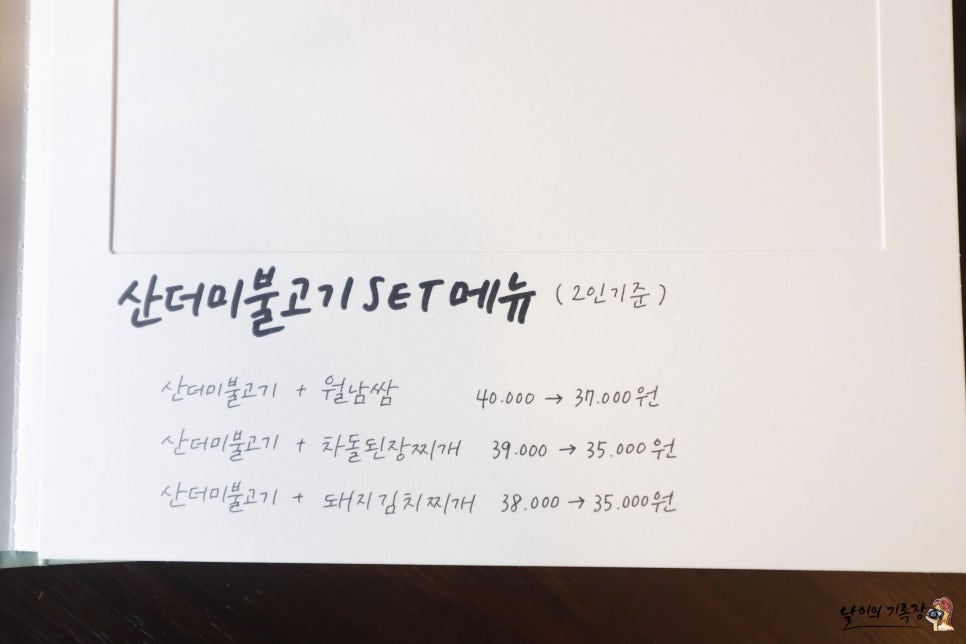 산더미불고기 SET 메뉴 (2인기준)
산더미불고기 + 월남쌈 40.000 → 37.000원
산더미불고기 + 차돌된장찌개 39.000 → 35.000원
산더미불고기 + 돼지김치찌개 38.000 → 35.000원
날이의 기록장